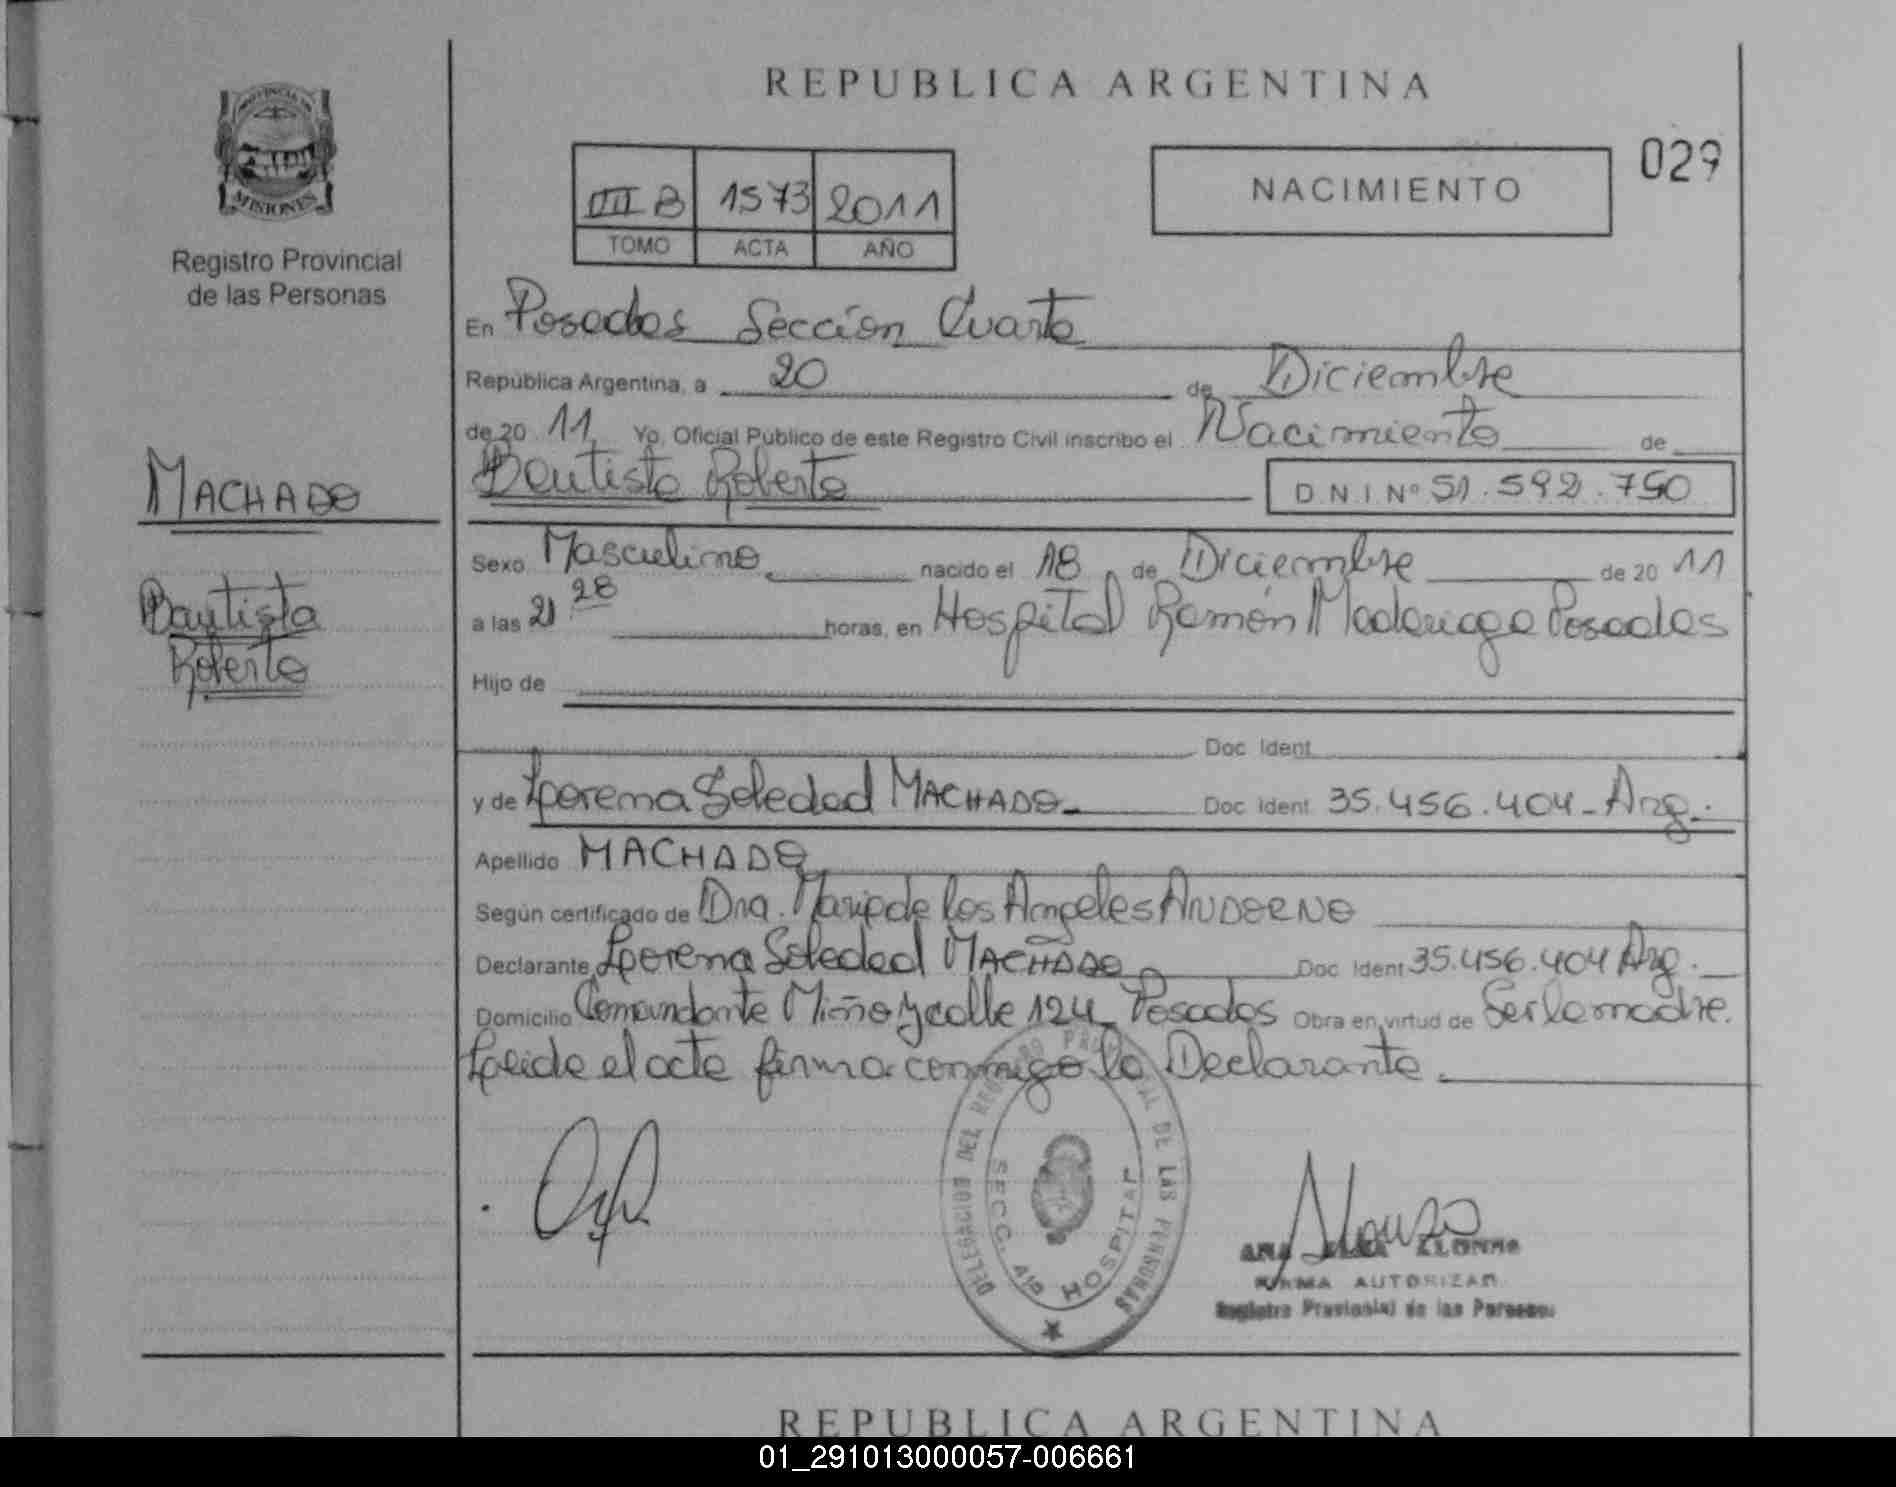 REPUBLICA ARGENTINA
029
PROVINCIA DE
MISIONES
Registro Provincial
de las Personas
III B 1573 2011
TOMO ACTA AÑO
NACIMIENTO
En Posadas Sección Cuarta
República Argentina, a 20 de Diciembre
de 20 11 Yo, Oficial Público de este Registro Civil inscribo el Nacimiento de
Bautista Roberto DNI Nº 51.592.750
MACHADO
Bautista
Roberto
Sexo Masculino nacido el 18 de Diciembre de 20 11
a las 21 28 horas, en Hospital Ramón Madariaga Posadas
Hijo de
Doc Ident
y de Lorena Soledad MACHADO Doc Ident 35.456.404 - Arg.
Apellido MACHADO
Según certificado de Dra. Maria de los Angeles ANDERNO
Declarante Lorena Soledad MACHADO Doc Ident 35.456.404 Arg.
Domicilio Comandante Miño y calle 124 Posadas Obra en virtud de Ser la madre.
Leida el acta firma conmigo la Declarante.
DELEGACION DEL REGISTRO PROVINCIAL DE LAS PERSONAS
SECC. 4ta HOSPITAL
Alonso
ANA ALONSO
FIRMA AUTORIZAD
Registro Provincial de las Personas
REPUBLICA ARGENTINA
01_291013000057-006661